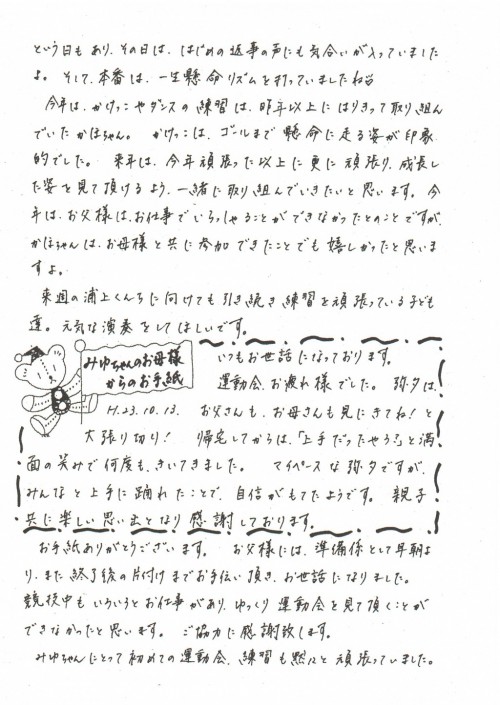 という日もあり、その日は、はじめの返事の声にも気合いが入っていました
よ。そして、本番は、一生懸命リズムを打っていましたね
今年は、かけっこやダンスの練習は、昨年以上にはりきって取り組ん
でいたかほちゃん。かけっこは、ゴールまで懸命に走る姿が印象
的でした。来年は、今年頑張った以上に更に頑張り、成長し
た姿を見て頂けるよう、一緒に取り組んでいきたいと思います。今
年は、お父様は、お仕事でいらっしゃることができなかったとのことですが、
かほちゃんは、お母様と共に参加できたことでも嬉しかったと思いま
すよ。
来週の浦上くんちに向けても引き続き練習を頑張っている子ども
達。元気な演奏をしてほしいです。
みゆちゃんのお母様
からのお手紙
H.23.10.13.
いつもお世話になっております。
運動会、お疲れ様でした。弥夕は、
お父さんも、お母さんも見にきてね!と
大張り切り! 帰宅してからは、「上手だったやろ?」と満
面の笑みで何度も、きいてきました。マイペースな弥夕ですが、
みんなと上手に踊れたことで、自信がもてたようです。親子
共に楽しい思い出となり感謝しております。
お手紙ありがとうございます。お父様には、準備係として早朝よ
り、また終了後の片付けまでお手伝い頂き、お世話になりました。
競技中もいろいろとお仕事があり、ゆっくり運動会を見て頂くことが
できなかったと思います。ご協力に感謝致します。
みゆちゃんにとって初めての運動会、練習も黙々と頑張っていました。